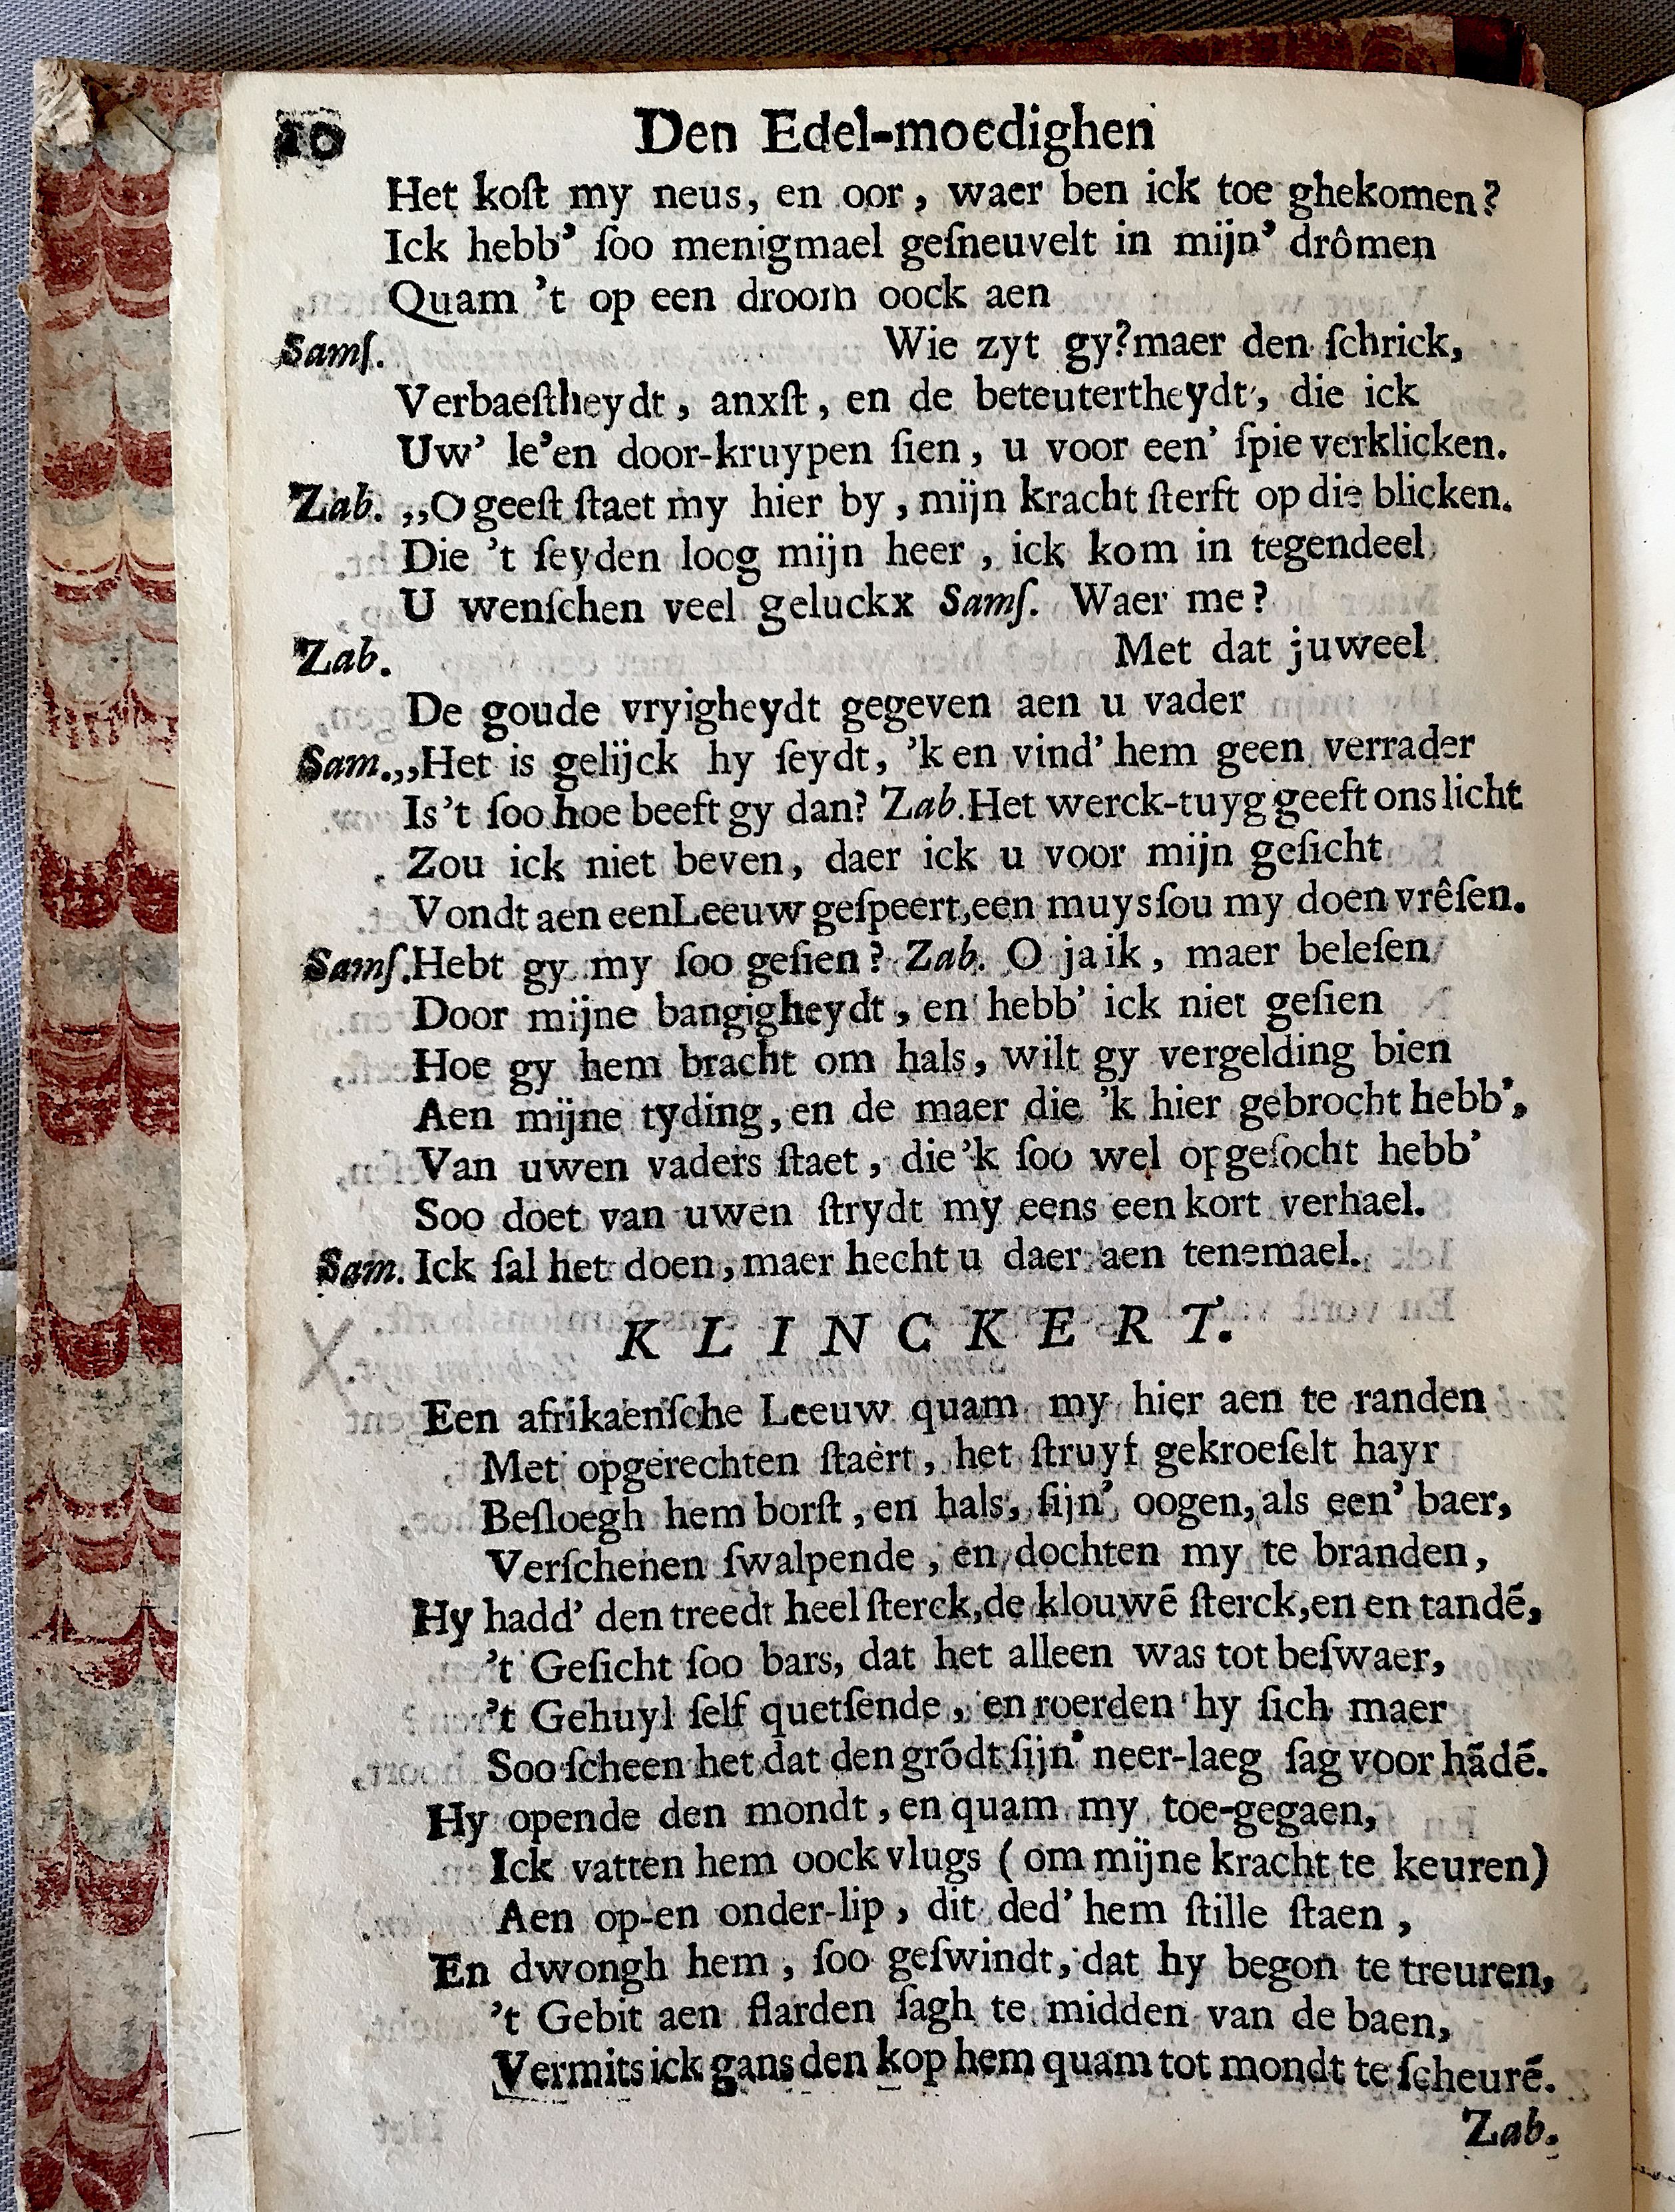 10 Den Edel-moedighen
Het koſt my neus, en oor, waer ben ick toe ghekomen?
Ick hebb' ſoo menigmael geſneuvelt in mijn' drômen
Quam 't op een droom oock aen
Samſ. Wie zyt gy? maer den ſchrick,
Verbaeſtheydt, anxſt, en de beteutertheydt, die ick
Uw' le'en door-kruypen ſien, u voor een' ſpie verklicken.
Zab. ,,O geeſt ſtaet my hier by, mijn kracht ſterft op die blicken.
Die 't ſeyden loog mijn heer, ick kom in tegendeel
U wenſchen veel geluckx Samſ. Waer me?
Zab. Met dat juweel
De goude vryigheydt gegeven aen u vader
Sam.,,Het is gelijck hy ſeydt, 'k en vind' hem geen verrader
Is't ſoo hoe beeft gy dan? Zab. Het werck-tuyg geeft ons licht
Zou ick niet beven, daer ick u voor mijn geſicht
Vondt aen een Leeuw geſpeert, een muys ſou my doen vrêſen.
Samſ. Hebt gy my ſoo geſien? Zab. O ja ik, maer beleſen
Door mijne bangigheydt, en hebb' ick niet geſien
Hoe gy hem bracht om hals, wilt gy vergelding bien
Aen mijne tyding, en de maer die 'k hier gebrocht hebb',
Van uwen vaders ſtaet, die 'k ſoo wel opgeſocht hebb'
Soo doet van uwen ſtrydt my eens een kort verhael.
Sam. Ick ſal het doen, maer hecht u daer aen tenemael.
KLINCKERT.
Een afrikaenſche Leeuw quam my hier aen te randen
Met opgerechten ſtaert, het ſtruyf gekroeſelt hayr
Beſloegh hem borſt, en hals, ſijn' oogen, als een' baer,
Verſchenen ſwalpende, en dochten my te branden,
Hy hadd' den treedt heel ſterck, de klouwē ſterck, en en tandē,
't Geſicht ſoo bars, dat het alleen was tot beſwaer,
't Gehuyl ſelf quetſende, en roerden hy ſich maer
Soo ſcheen het dat den grōdt ſijn' neer-laeg ſag voor hādē.
Hy opende den mondt, en quam my toe-gegaen,
Ick vatten hem oock vlugs (om mijne kracht te keuren)
Aen op-en onder-lip, dit ded' hem ſtille ſtaen,
En dwongh hem, ſoo geſwindt, dat hy begon te treuren,
't Gebit aen flarden ſagh te midden van de baen,
Vermits ick gans den kop hem quam tot mondt te ſcheurē.
Zab.